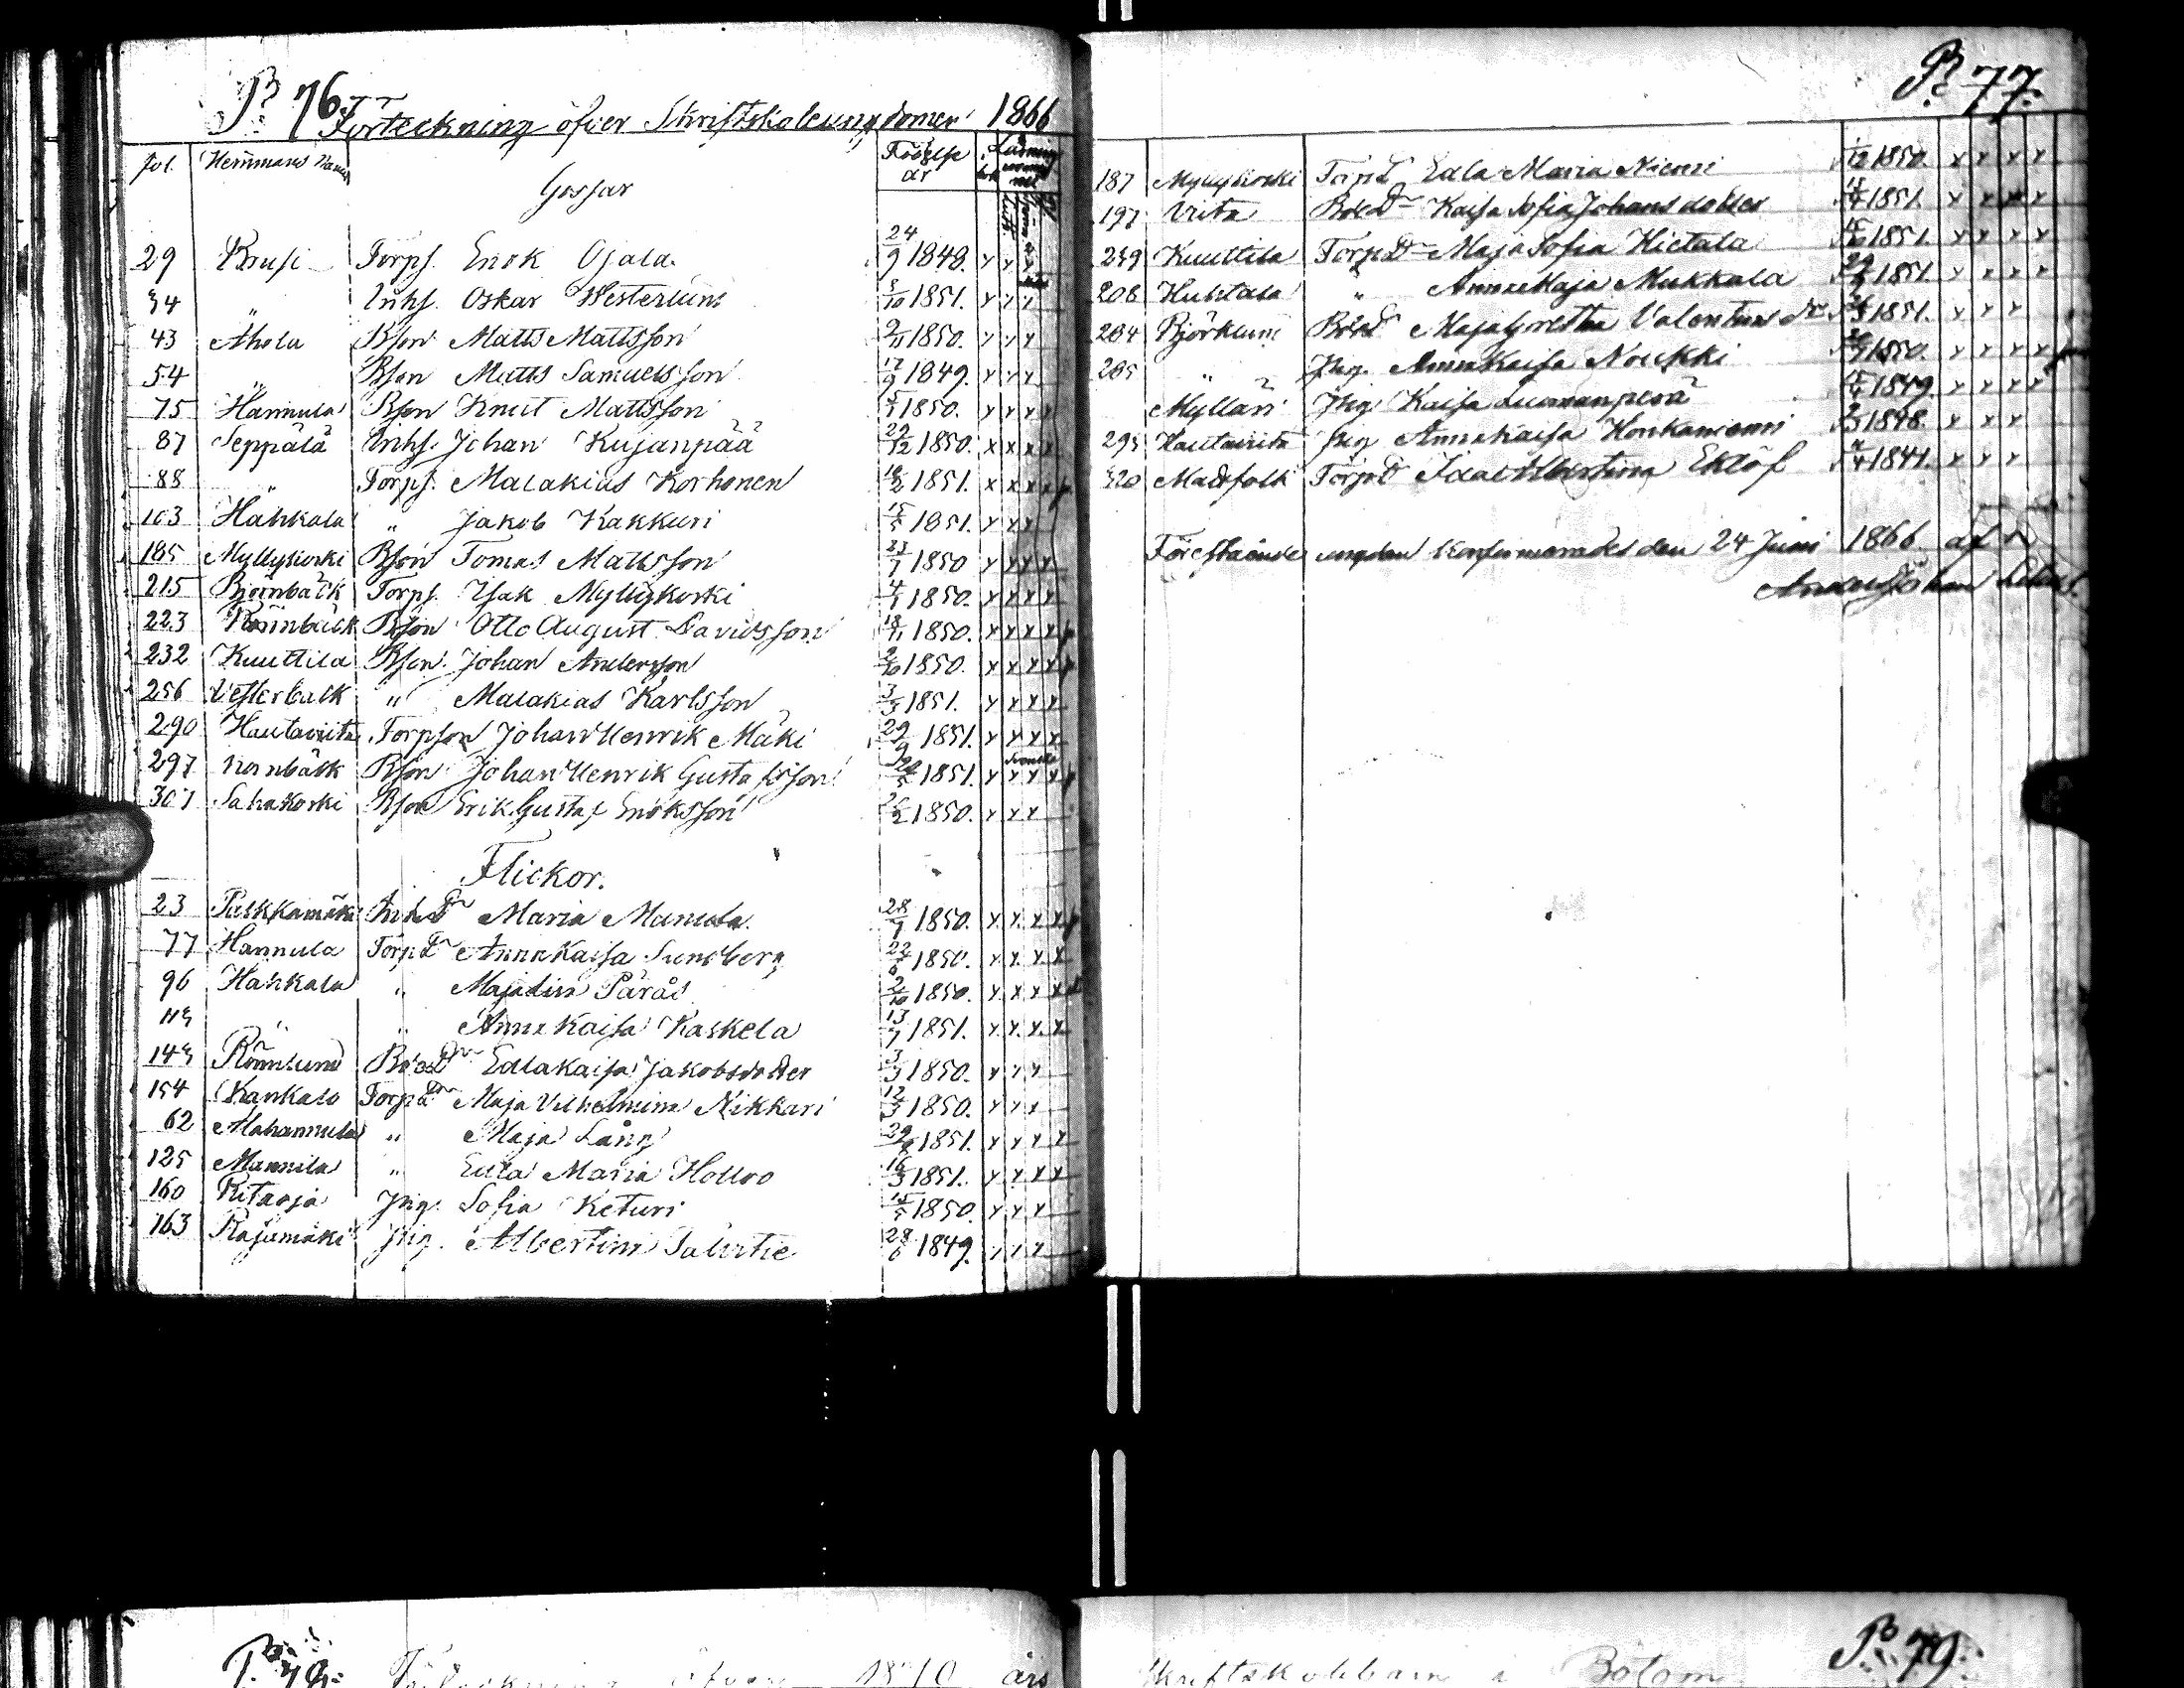 P. 76.
Förteckning öfver Skriftskoleungdomen 1866
fol. Hemmans Namn Födelse år
Gossar
29 Brusi Torps. Enok Ojala. 24/9 1848. x x x
34 " Inhs. Oskar Westerlund 5/10 1851. x x x
43 Ahola Bson Matts Mattsson 2/11 1850. x x x
54 " Bson Matts Samuelsson 17/9 1849. x x x
75 Hannula Bson Knut Mattsson 1850. x x x x
87 Seppälä Inhs. Johan Kujanpää 29/12 1850. x x x x
88 " Torps. Malakias Korhonen 1851. x x x x
103 Hahkala " Jakob Kakkuri 15/5 1851. x x x
185 Myllykoski Bson Tomas Mattsson 23/7 1850 x x x x
215 Björnbäck Torps. Isak Myllykoski 4/1 1850. x x x x
223 Rönnbäck Bson Otto August Davidsson 18/11 1850. x x x x
232 Kuuttila Bson. Johan Andersson 2/10 1850. x x x x
256 Vesterback " Malakias Karlsson 3/3 1851. x x x x
290 Hautaviita Torpson Johan Henrik Mäki 29/9 1851. x x x x
297 Bson Johan Henrik Gustafsson 1851. x x x x
307 Sahakoski Bson Erik Gustaf Enoksson 1850. x x x
Flickor.
23 Pukkamäki Inhs Dr Maria Mannila. 28/7 1850. x x x x
77 Hannula Torp Dr Anna Kaisa Sundberg 22/6 1850. x x x x
96 Hahkala " Majalin Parås 2/10 1850. x x x x
113 " " Anna Kaisa Kaskela 13/7 1851. x x x x
143 Rönnlund Bond Dr Edla Kaisa Jakobsdotter 3/3 1850. x x x
154 Kankalo Torp Dr Maja Vilhelmina Nikkari 12/3 1850. x x x
62 Alahannula " Maja Lång 29/8 1851. x x x x
125 Mannila " Edla Maria Holloo 16/3 1851. x x x x
160 Ritaoja Pig. Sofia Keturi 15/5 1850. x x x
163 Rajamäki Pig. Albertina 28/6 1849. x x x
P. 77
187 Myllykoski Torp D Edla Maria Niemi 1/12 1850. x x x x
197 Viita Bond Dr Kaisa Sofia Johansdotter 1851. x x x x
239 Kuuttila Torp Dr Maja Sofia Hietala 1851. x x x x
208 Huhtala " Anna Maja Mukkala 1851. x x x x
284 Björklund Bond D Maja Gretha Valentins dr 1851. x x x
285 " Pig. Anna Kaisa Noukki 1850. x x x x
Mylläri Pig. Kaisa Luomanperä 1849. x x x x
293 Hautaviita Pig Anna Kaisa Honkaniemi 1848. x x x
320 Torp D Ida Albertina Eklöf x x x
Förestående ungdom konfirmerades den 24 Juni 1866. af
Anders Johan
P. 78. Förteckning öfver 1870 års
Skriftskolbarn i Bötom
P. 79.